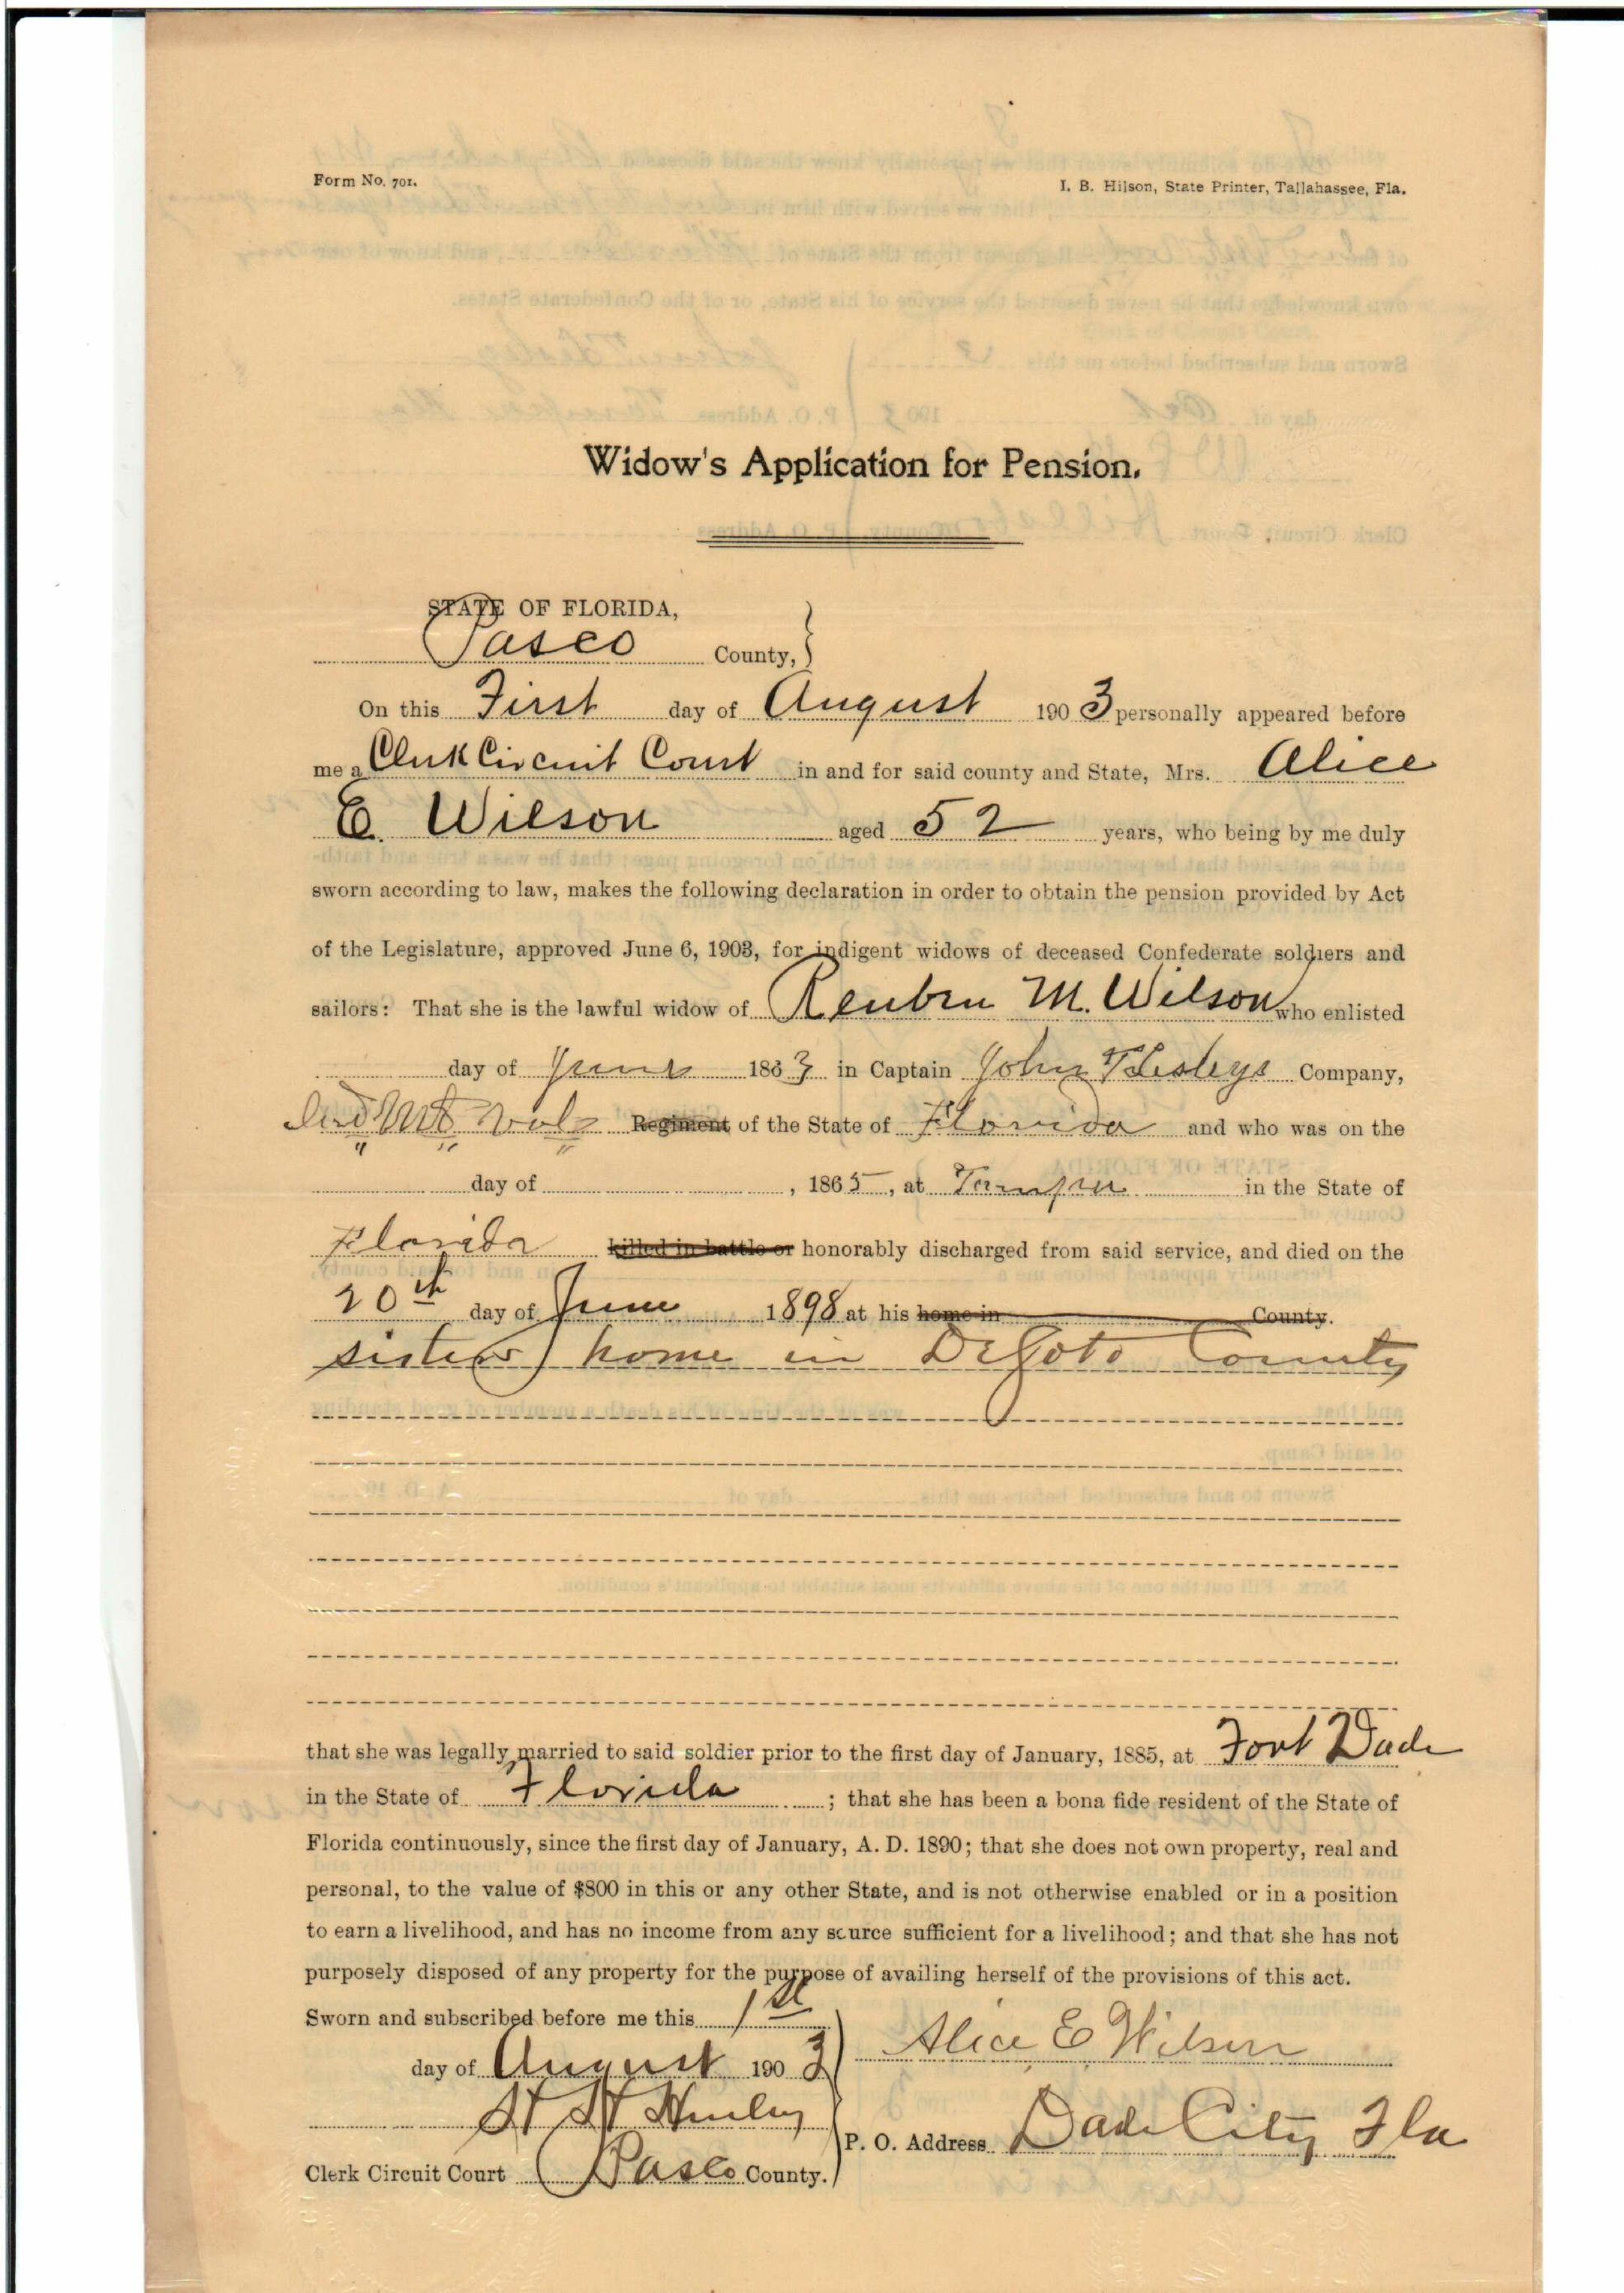 Form No. 701.
I. B. Hilson, State Printer, Tallahassee, Fla.
Widow's Application for Pension.
STATE OF FLORIDA,
Pasco County,
On this First day of August 1903 personally appeared before
me a Clerk Circuit Court in and for said county and State, Mrs. Alice
E. Wilson aged 52 years, who being by me duly
sworn according to law, makes the following declaration in order to obtain the pension provided by Act
of the Legislature, approved June 6, 1903, for indigent widows of deceased Confederate soldiers and
sailors: That she is the lawful widow of Reuben M. Wilson who enlisted
day of June 1863 in Captain John T Lesleys Company,
Ind Mt Vols Regiment of the State of Florida and who was on the
day of , 1865, at Tampa in the State of
Florida killed in battle or honorably discharged from said service, and died on the
20th day of June 1898 at his home in County.
sisters home in DeSoto County
that she was legally married to said soldier prior to the first day of January, 1885, at Fort Dade
in the State of Florida ; that she has been a bona fide resident of the State of
Florida continuously, since the first day of January, A. D. 1890; that she does not own property, real and
personal, to the value of $800 in this or any other State, and is not otherwise enabled or in a position
to earn a livelihood, and has no income from any source sufficient for a livelihood; and that she has not
purposely disposed of any property for the purpose of availing herself of the provisions of this act.
Sworn and subscribed before me this 1st
day of August 1903
Alice E Wilson
P. O. Address Dade City Fla
Clerk Circuit Court Pasco County.